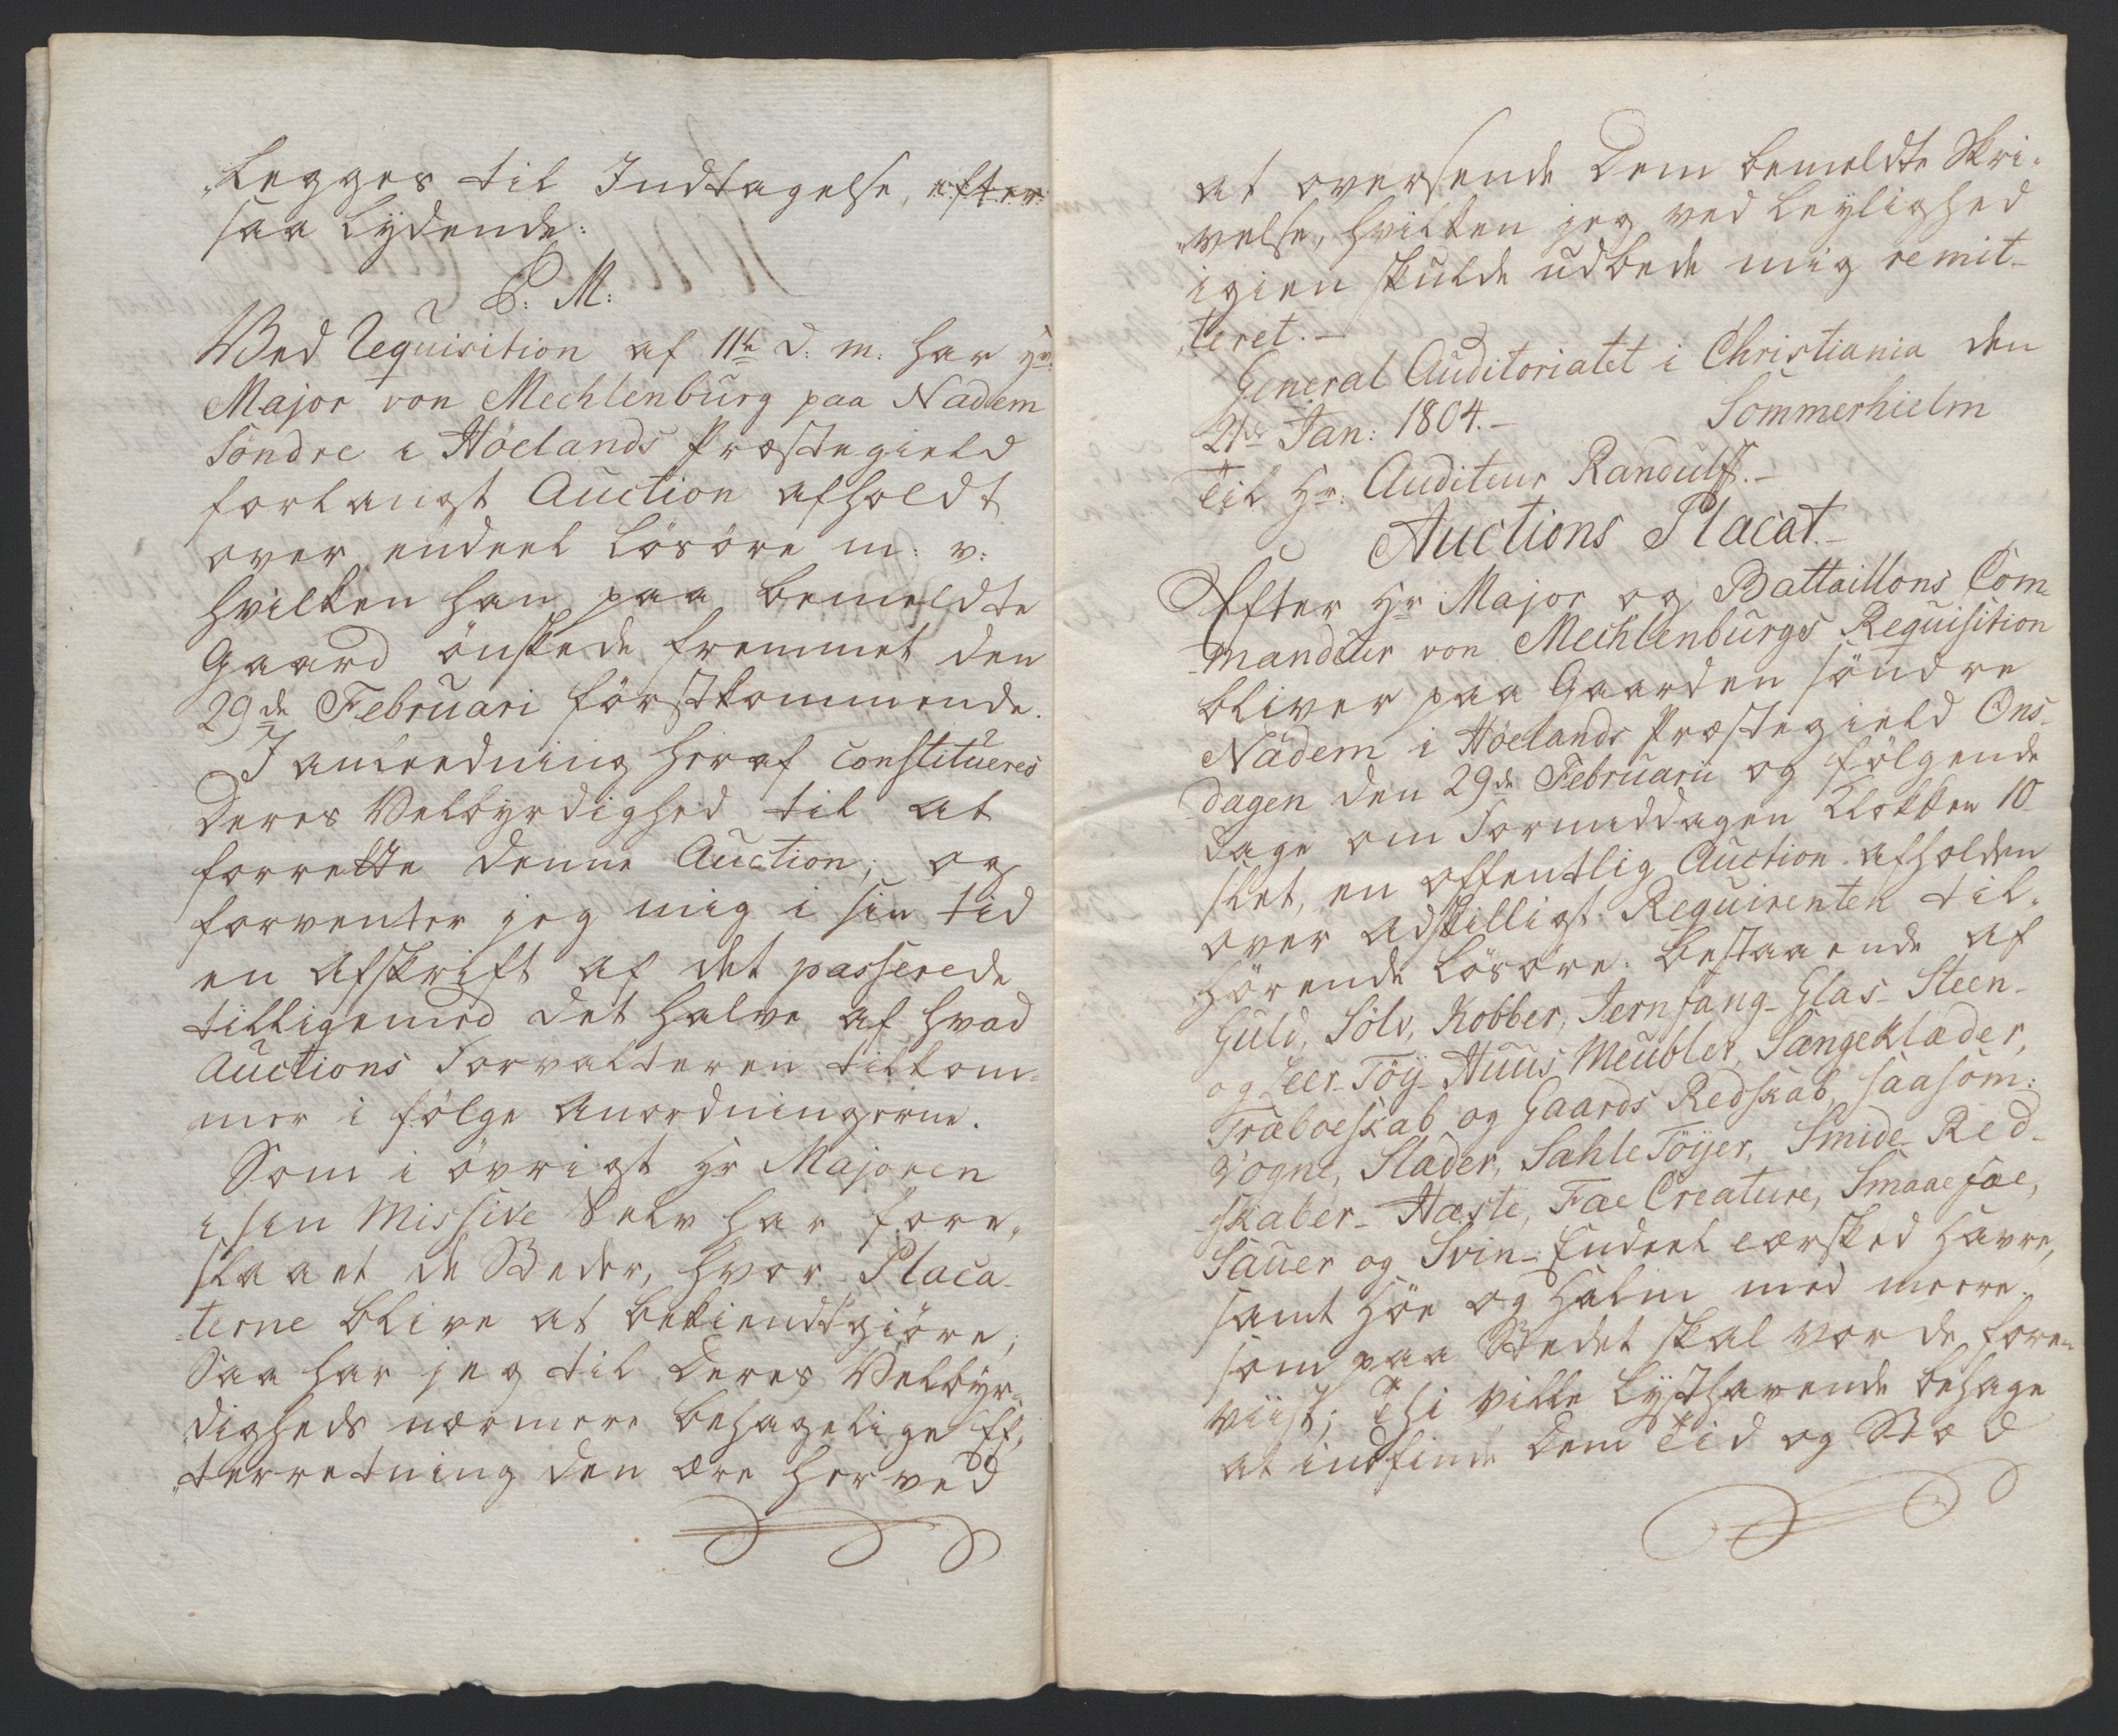 „Legges til Indtagelse, efter
saa Lydende:
P: M:
Ved Requisition af 11te d: m: har Hr:
Major von Mechlenburg paa Nadem
Söndre i Höelands Præstegield
forlangt Auction afholdt
over endeel Lösöre m: v:
hvilken han paa bemeldte
Gaard önskede fremmet den
29de Februari förstkommende.
I anleedning heraf constitueres
Deres Velbyrdighed til at
forrette denne Auction; og
forventer jeg mig i sin tid
en Afskrift af det passerede
tilligemed det halve af hvad
Auctions Forvalteren tilkom-
mer i fölge Anordningerne.
Som i övrigt Hr Majoren
i sin Missive Selv har fore-
slaaet de Steder, hvor Placa-
terne blive at bekiendtgiöre;
Saa har jeg til Deres Velbyr-
digheds nærmere behagelige Ef-
„terretning den ære herved
at oversende Dem bemeldte Skri-
„velse, hvilken jeg ved Leylighed
igien skulde udbede mig remit-
„teret. –
General Auditoriatet i Christiania den
21de Jan: 1804. – Sommerhielm
Til Hr: Auditeur Randulff. –
Auctions Placat. –
Efter Hr Major og Battaillons Com-
mandeur von Mechlenburgs Requisition
bliver paa Gaarden söndre
Nadem i Höelands Præstegield Ons-
dagen den 29de Februarii og fölgende
Dage om Formiddagen Klokken 10
slet, en offentlig Auction afholden
over adskilligt Requirenten til-
hörende Lösöre. bestaaende af
Guld, Sölv, Kobber, Jernfang- Glas- Steen-
og Leer-Töy- Huus Meubler, Sængeklæder,
Træboeskab og Gaards Redskab, saasom:
Vogne, Slæder, Sahle Töyer, Smide-Red-
skaber- Hæste, Fæe Creature, Smaae fæe,
Sauer og Svin- Endeel tærsked Havre,
samt Höe og Halm med meere.
som paa Stedet skal vorde fore-
viist; Thi ville Lysthavende behage
at indfinde Dem Tid og Stæd